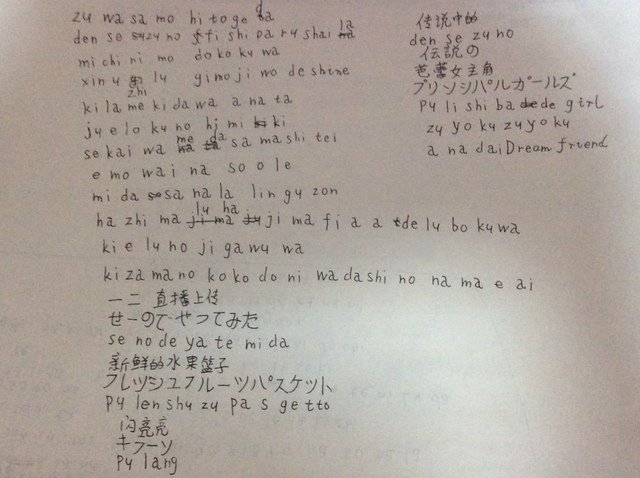 zu wa sa mo hi to ge da
den se no fi shi pa ru shai la
mi chi ni mo do ko ku wa
xin y zhi lu gi mo ji wo de shine
ki la me ki da wa a na ta
ju e lo ku no hi mi ki
se kai wa me da sa ma shi tei
e mo wa i na so o le
mi da sa na la lin gu zon
ha zhi ma lu ha ji ma fi a a de lu bo ku wa
ki e lu no ji ga wu wa
ki za ma no ko ko do ni wa da shi no na ma e ai
一二 直播上传
せーのでやってみた
se no de ya te mi da
新鲜的水果篮子
フレッシュフルーツパスケット
py len shu zu pa s ge tto
闪亮亮
キラーソ
py lang
传说中的
den se zu no
伝説の
芭蕾女主角
プリンシパルガールズ
py li shi ba de girl
zu yo ku zu yo ku
a na dai Dream friend